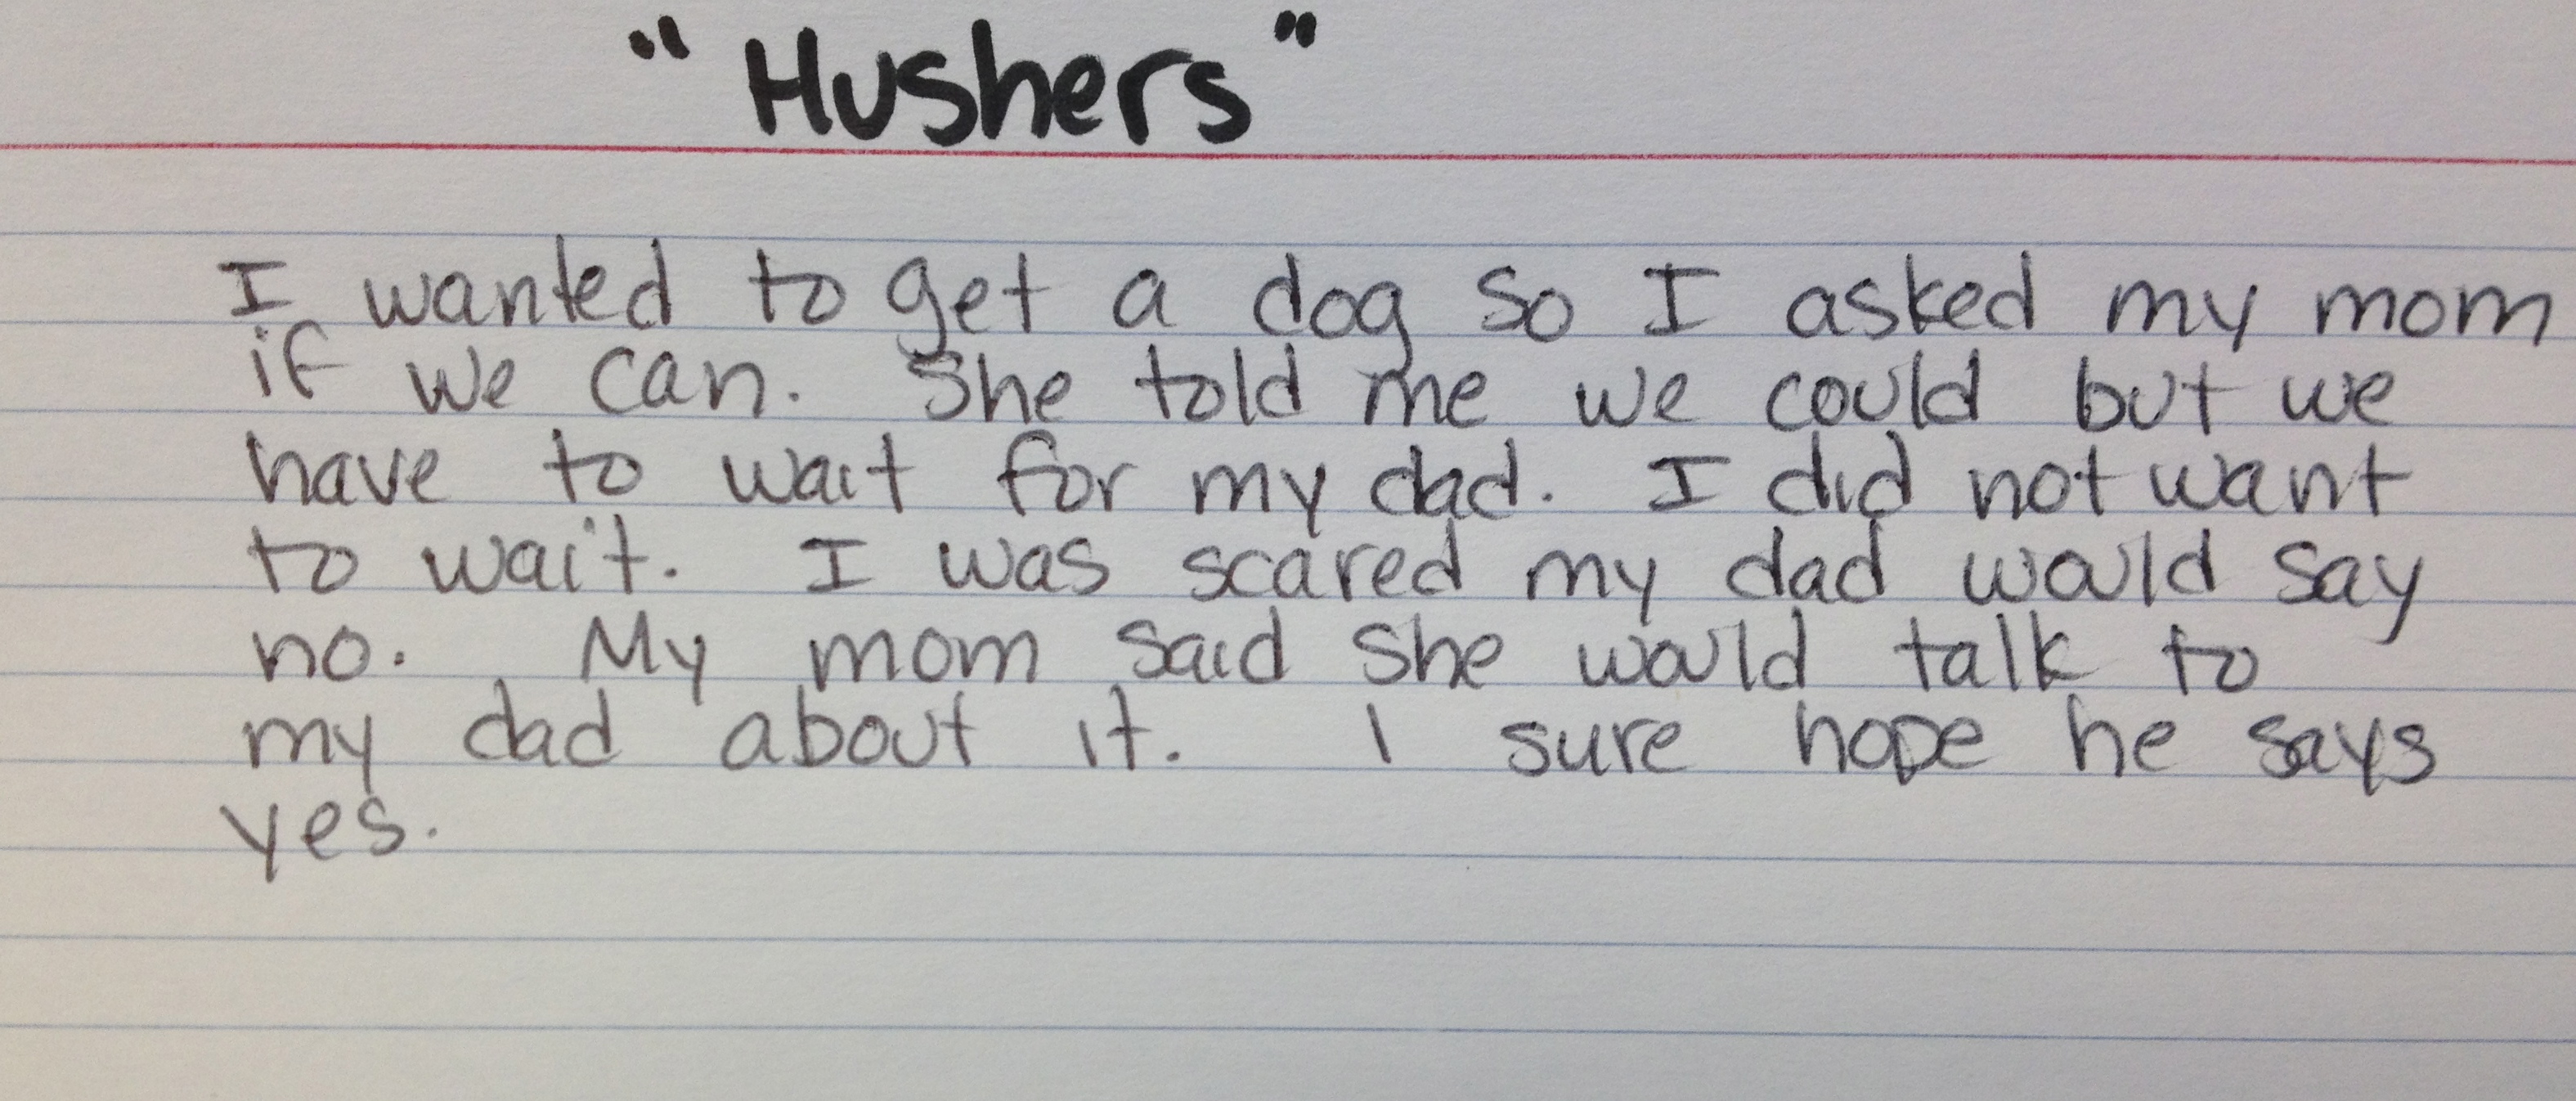 "Hushers"
I wanted to get a dog so I asked my mom
if we can. She told me we could but we
have to wait for my dad. I did not want
to wait. I was scared my dad would say
no. My mom said she would talk to
my dad about it. I sure hope he says
yes.